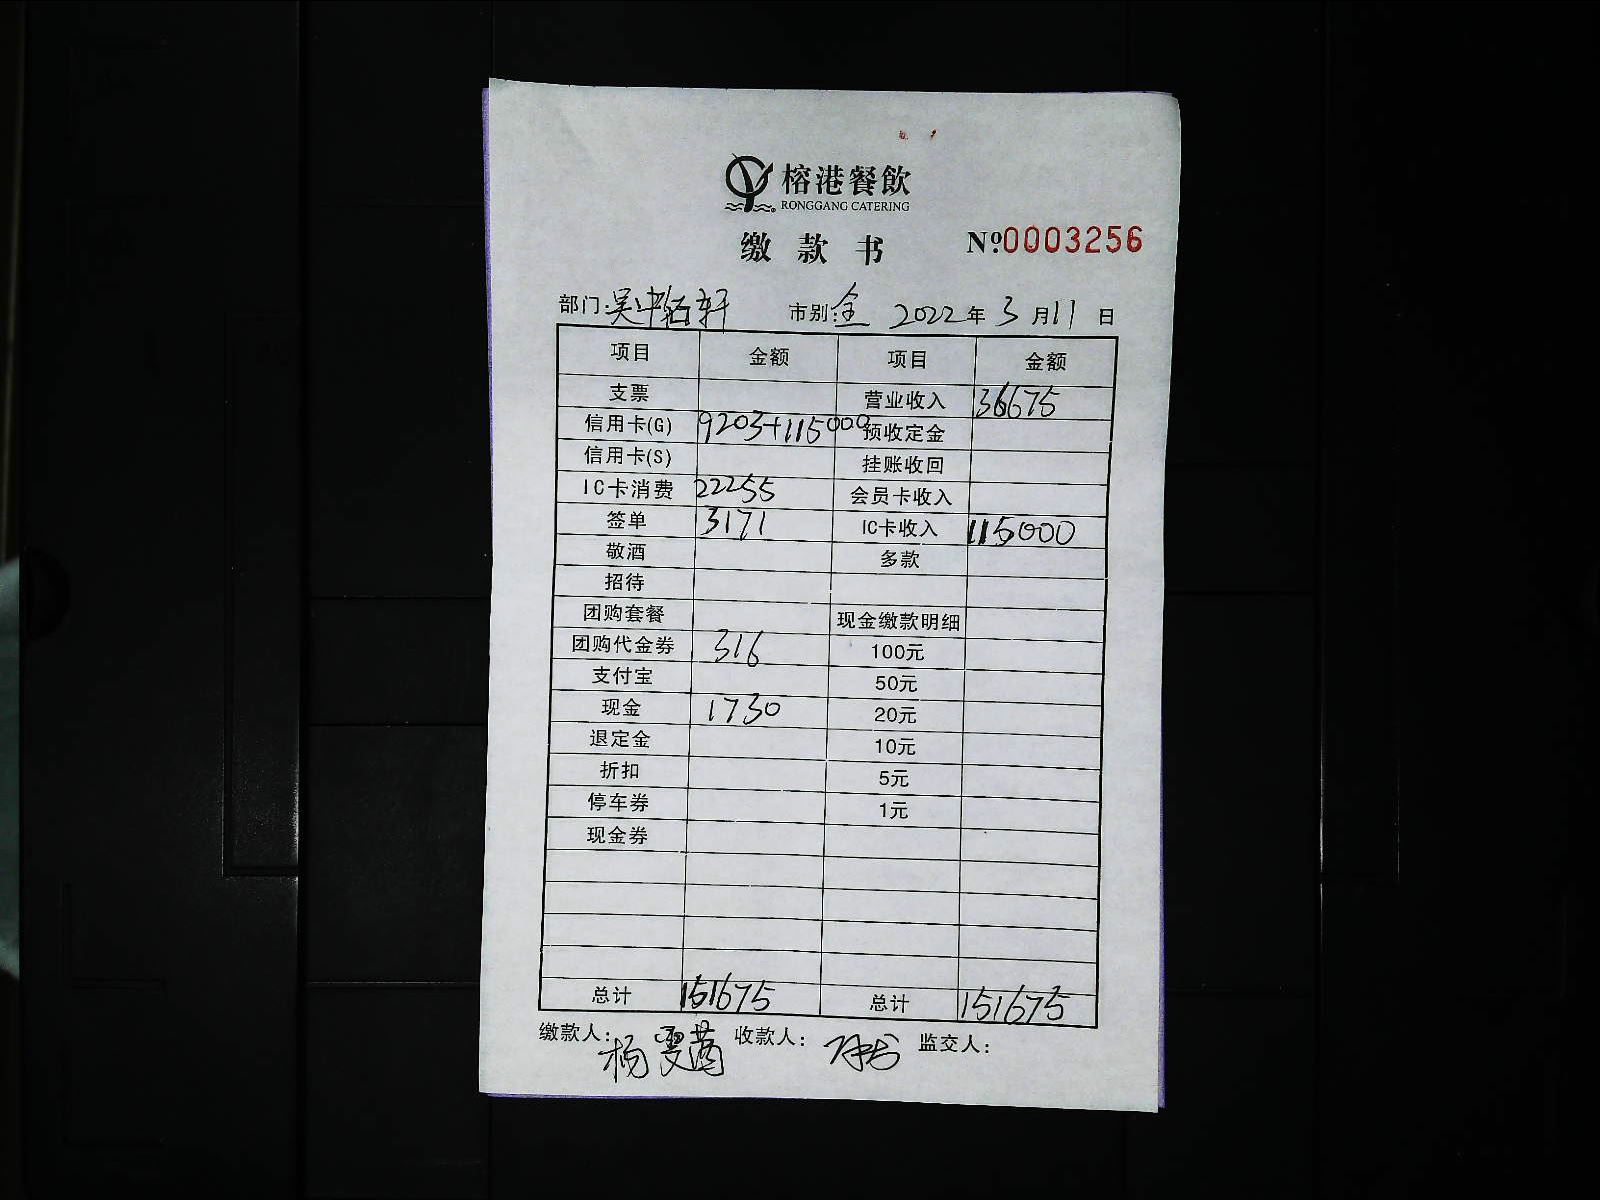 榕港餐飲
RONGGANG CATERING
缴款书 №0003256
部门:吴中钻轩 市别:全 2022年3月11日
项目 金额 项目 金额
支票 营业收入 36675
信用卡(G) 9203+115000 预收定金
信用卡(S) 挂账收回
IC卡消费 22255 会员卡收入
签单 3171 IC卡收入 115000
敬酒 多款
招待
团购套餐 现金缴款明细
团购代金券 316 100元
支付宝 50元
现金 1730 20元
退定金 10元
折扣 5元
停车券 1元
现金券
总计 151675 总计 151675
缴款人: 杨 收款人: 监交人: